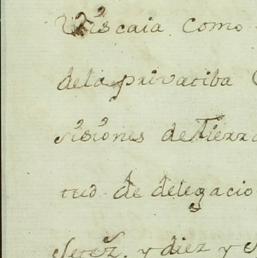 Viscaia como
dela privatiba
sisiones de tierra
tud de delegacio
Jerez, y diez y